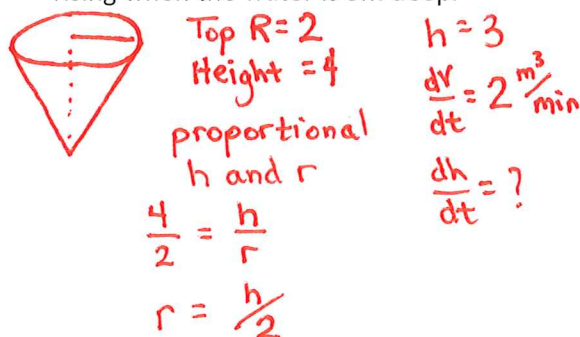 Top R=2
Height = 4
proportional
h and r
4/2 = h/r
r = h/2
h = 3
dv/dt = 2 m³/min
dh/dt = ?